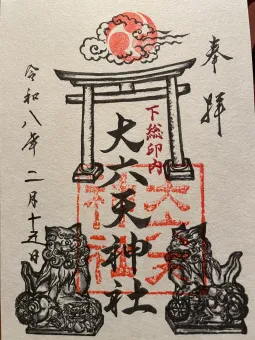 奉拝
下総印内
大六天神社
令和八年二月十五日